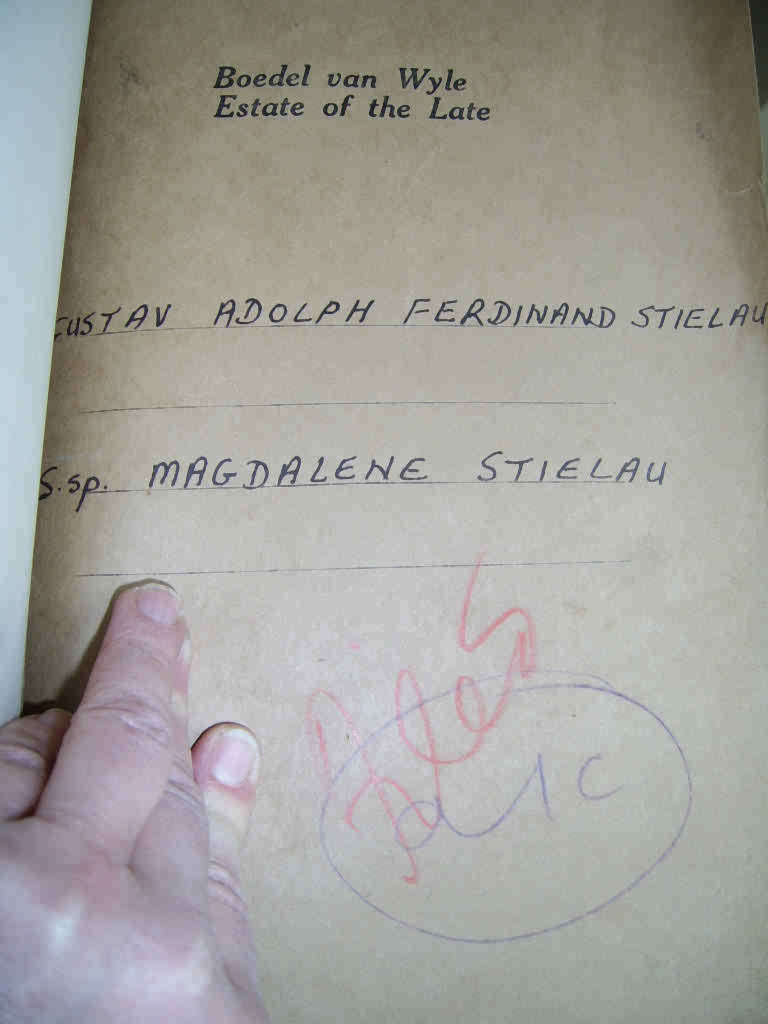 Boedel van Wyle
Estate of the Late
GUSTAV ADOLPH FERDINAND STIELAU
S.sp. MAGDALENE STIELAU